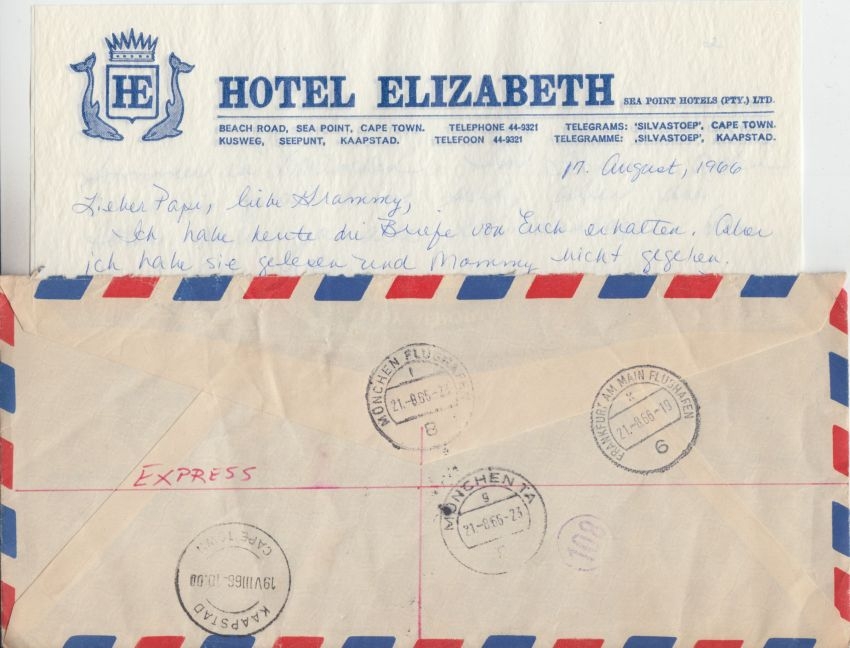 HE
HOTEL ELIZABETH SEA POINT HOTELS (PTY.) LTD.
BEACH ROAD, SEA POINT, CAPE TOWN. TELEPHONE 44-9321 TELEGRAMS: 'SILVASTOEP', CAPE TOWN.
KUSWEG, SEEPUNT, KAAPSTAD. TELEFOON 44-9321 TELEGRAMME: ,SILVASTOEP', KAAPSTAD.
17. August, 1966
Lieber Papi, liebe Grammy,
Ich habe heute die Briefe von Euch erhalten. Aber
ich habe sie gelesen und Mommy nicht gegeben.
MÜNCHEN FLUGHAFEN
21.-8.66-23
8
FRANKFURT AM MAIN FLUGHAFEN
x
21.-8.66-19
6
EXPRESS
MÜNCHEN TA
g
21-8.66-23
108
CAPE TOWN
19 VIII 66-10.00
KAAPSTAD